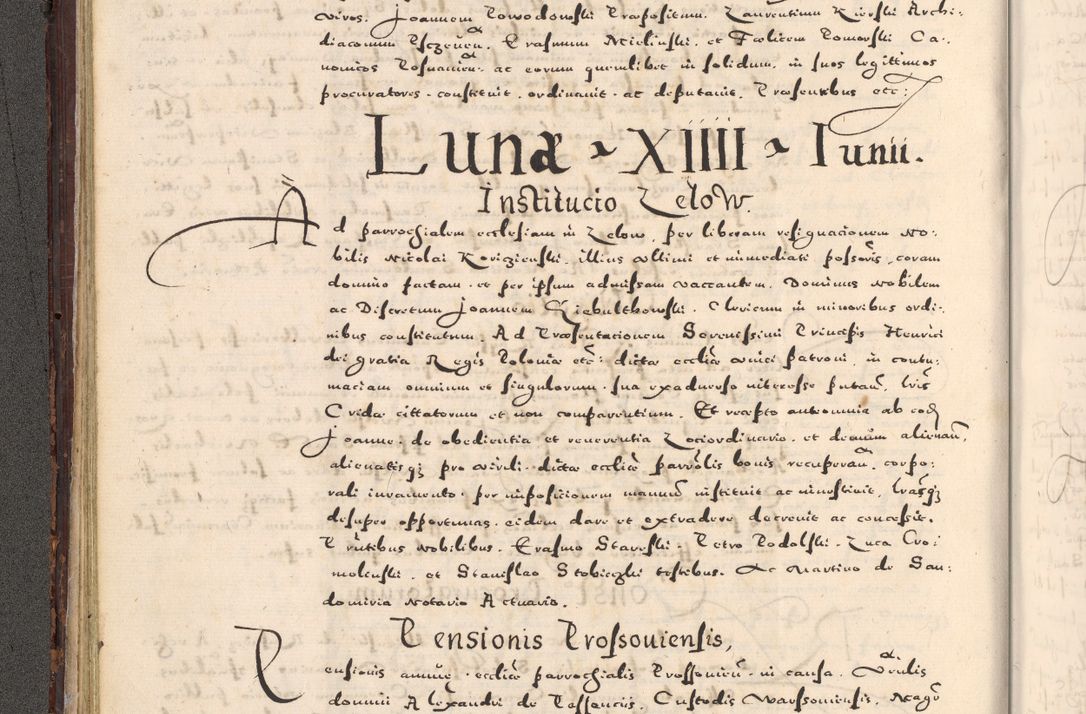 viros. Joannem Powodowski Præpositum. Laurentium Kierski Archi:
diaconum Psczeuen. Erasmum Mielinski. et Fœlicem Pomorski Ca:
nonicos Posnanien: ac eorum quemlibet in solidum, in suos legittimos
procuratores. constituit. ordinauit. ac deputauit. Præsentibus etc:
Lunæ ~ XIIII ~ Iunii.
Institucio Zelow.
Ad parrochialem ecclesiam in Zelow, per liberam resignacionem No:
bilis Nicolai Koriczienski. illius vltimi et immediati possoris, coram
domino factam. et per ipsum admissam vaccantem. Dominus Nobilem
ac Discretum Joannem Kiebulthowski. Clericum in minoribus ordi:
nibus constitutum. Ad Præsentacionem Serenissimi Principis Henrici
dei gratia Regis Poloniæ etc: dictæ eccliæ vnici patroni, in contu:
maciam omnium et singulorum. sua exaduerso interesse putan, lris
Cridæ cittatorum et non comparentium. Et recepto anteomnia ab eod
Joanne: de obedientia et reuerentia Lociordinario. et demum alienan,
alienatisq; pro virili. dictæ eccliæ parrolis bonis recuperan. corpo:
rali iuramento. per imposicionem manuum instituit ac inuestiuit, lrasq;
desuper opportunas. eidem dare et extradere decreuit ac concessit.
Pntibus Nobilibus. Erasmo Starsski. Petro Podolski. Luca Cro:
molenski. et Stanislao Stobieczki testibus. Ac Martino de San:
domiria Notario Actuario.
Pensionis Prossouiensis,
Pensionis annuæ. eccliæ parrochialis Prossouien. in causa. Vnlis
domini Alexandri de Pessenciis, Custodis Warssouiensis, Magr